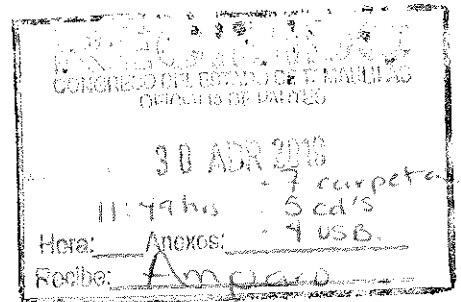 CONGRESO DEL ESTADO DE TAMAULIPAS
OFICIALIA DE PARTES
30 ABR
- 7 carpetas
11:49 hrs - 5 cd's
Hora: Anexos: - USB.
Recibe: Amparo